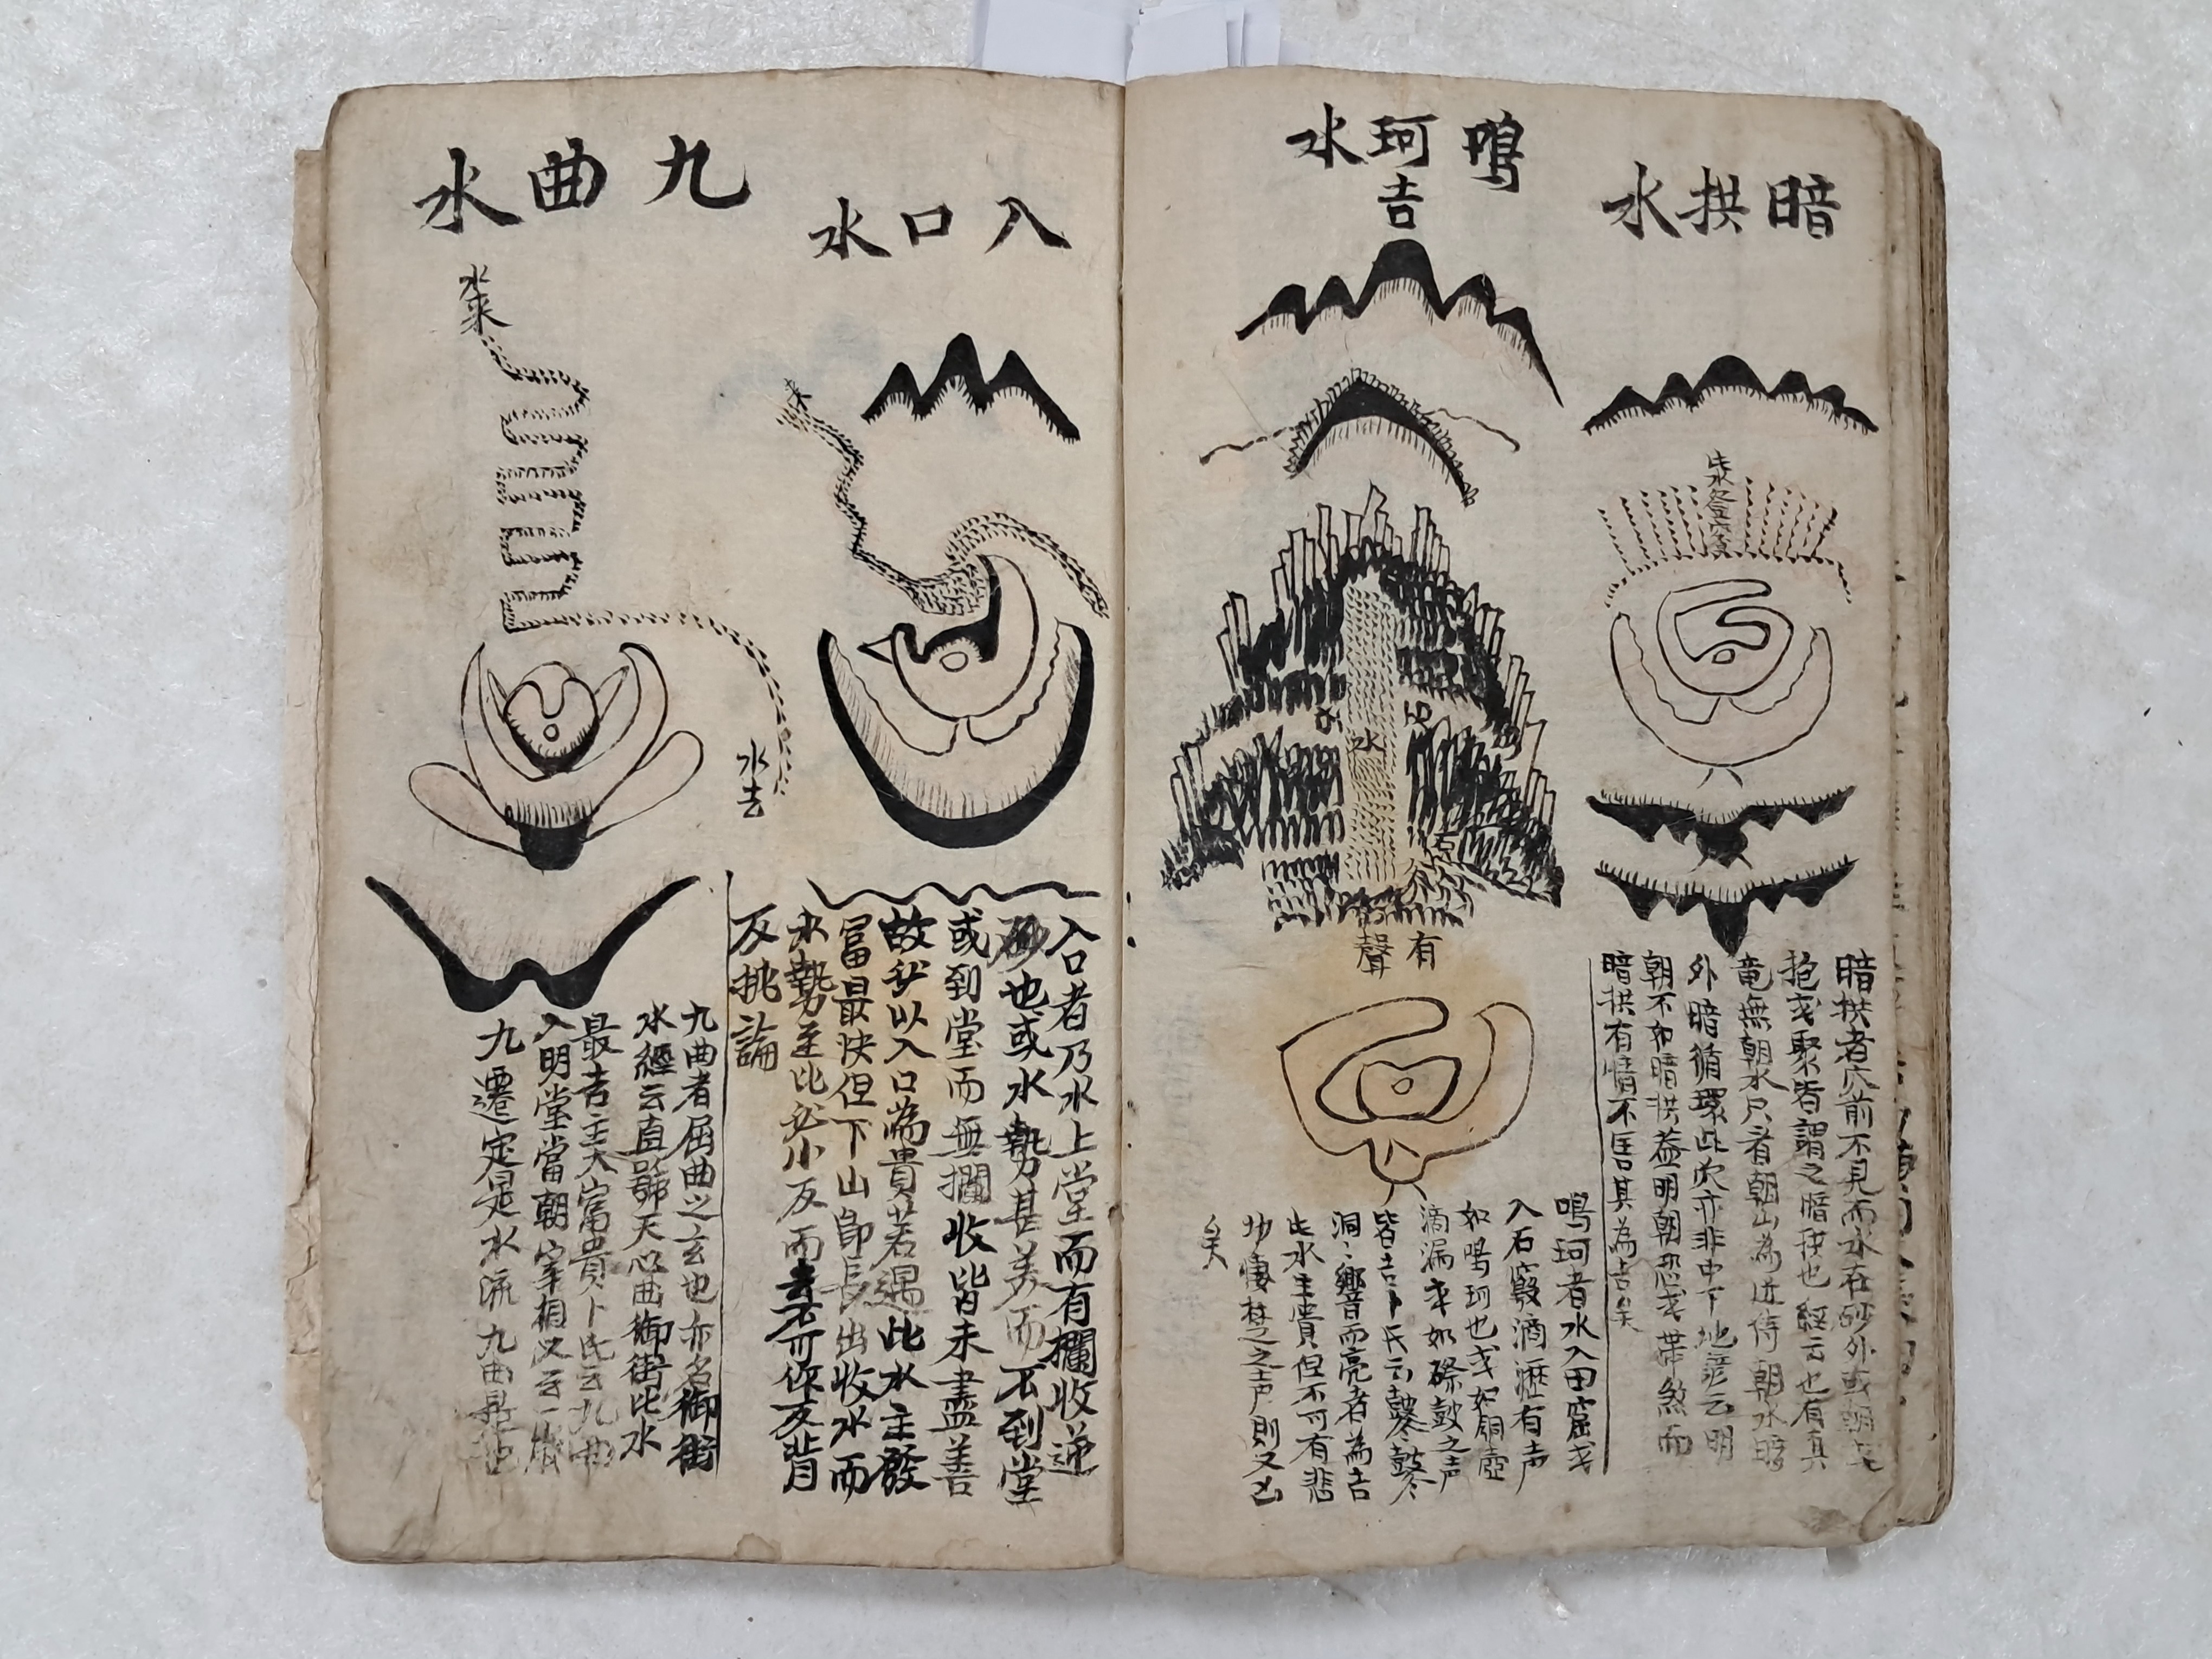 暗拱水
鳴珂水
吉
暗拱者穴前不見而水在砂外或朝或
抱或聚皆謂之暗拱也經云也有真
竜無朝水只看朝山為近侍朝水暗
外暗循環此穴亦非中下地諺云明
朝不如暗拱蓋明朝恐或帶煞而
暗拱有情不匡其為吉矣
水
有
聲
鳴珂者水入田窟或
入石竅滴瀝有声
如鳴珂也或如銅壺
滴漏或如磜鼓之声
皆吉卜氏云鼕鼕
洞洞響而亮者為吉
此水主貴但不可有悲
切悽楚之声則又凶
矣
入口水
來
入口者乃水上堂而有攔收逆
砂也或水勢甚美而不到堂
或到堂而無攔收皆未盡善
故水以入口為貴若遇此水主發
富最快但下山即長出收水而
水勢至此小反而去不可作反背
反挑論
九曲水
水來
水去
九曲者屈曲之玄也亦名御街
水經云直號天心曲御街此水
最吉主大富貴卜氏云九曲
入明堂當朝宰相又云一歲
九遷定是水流九曲